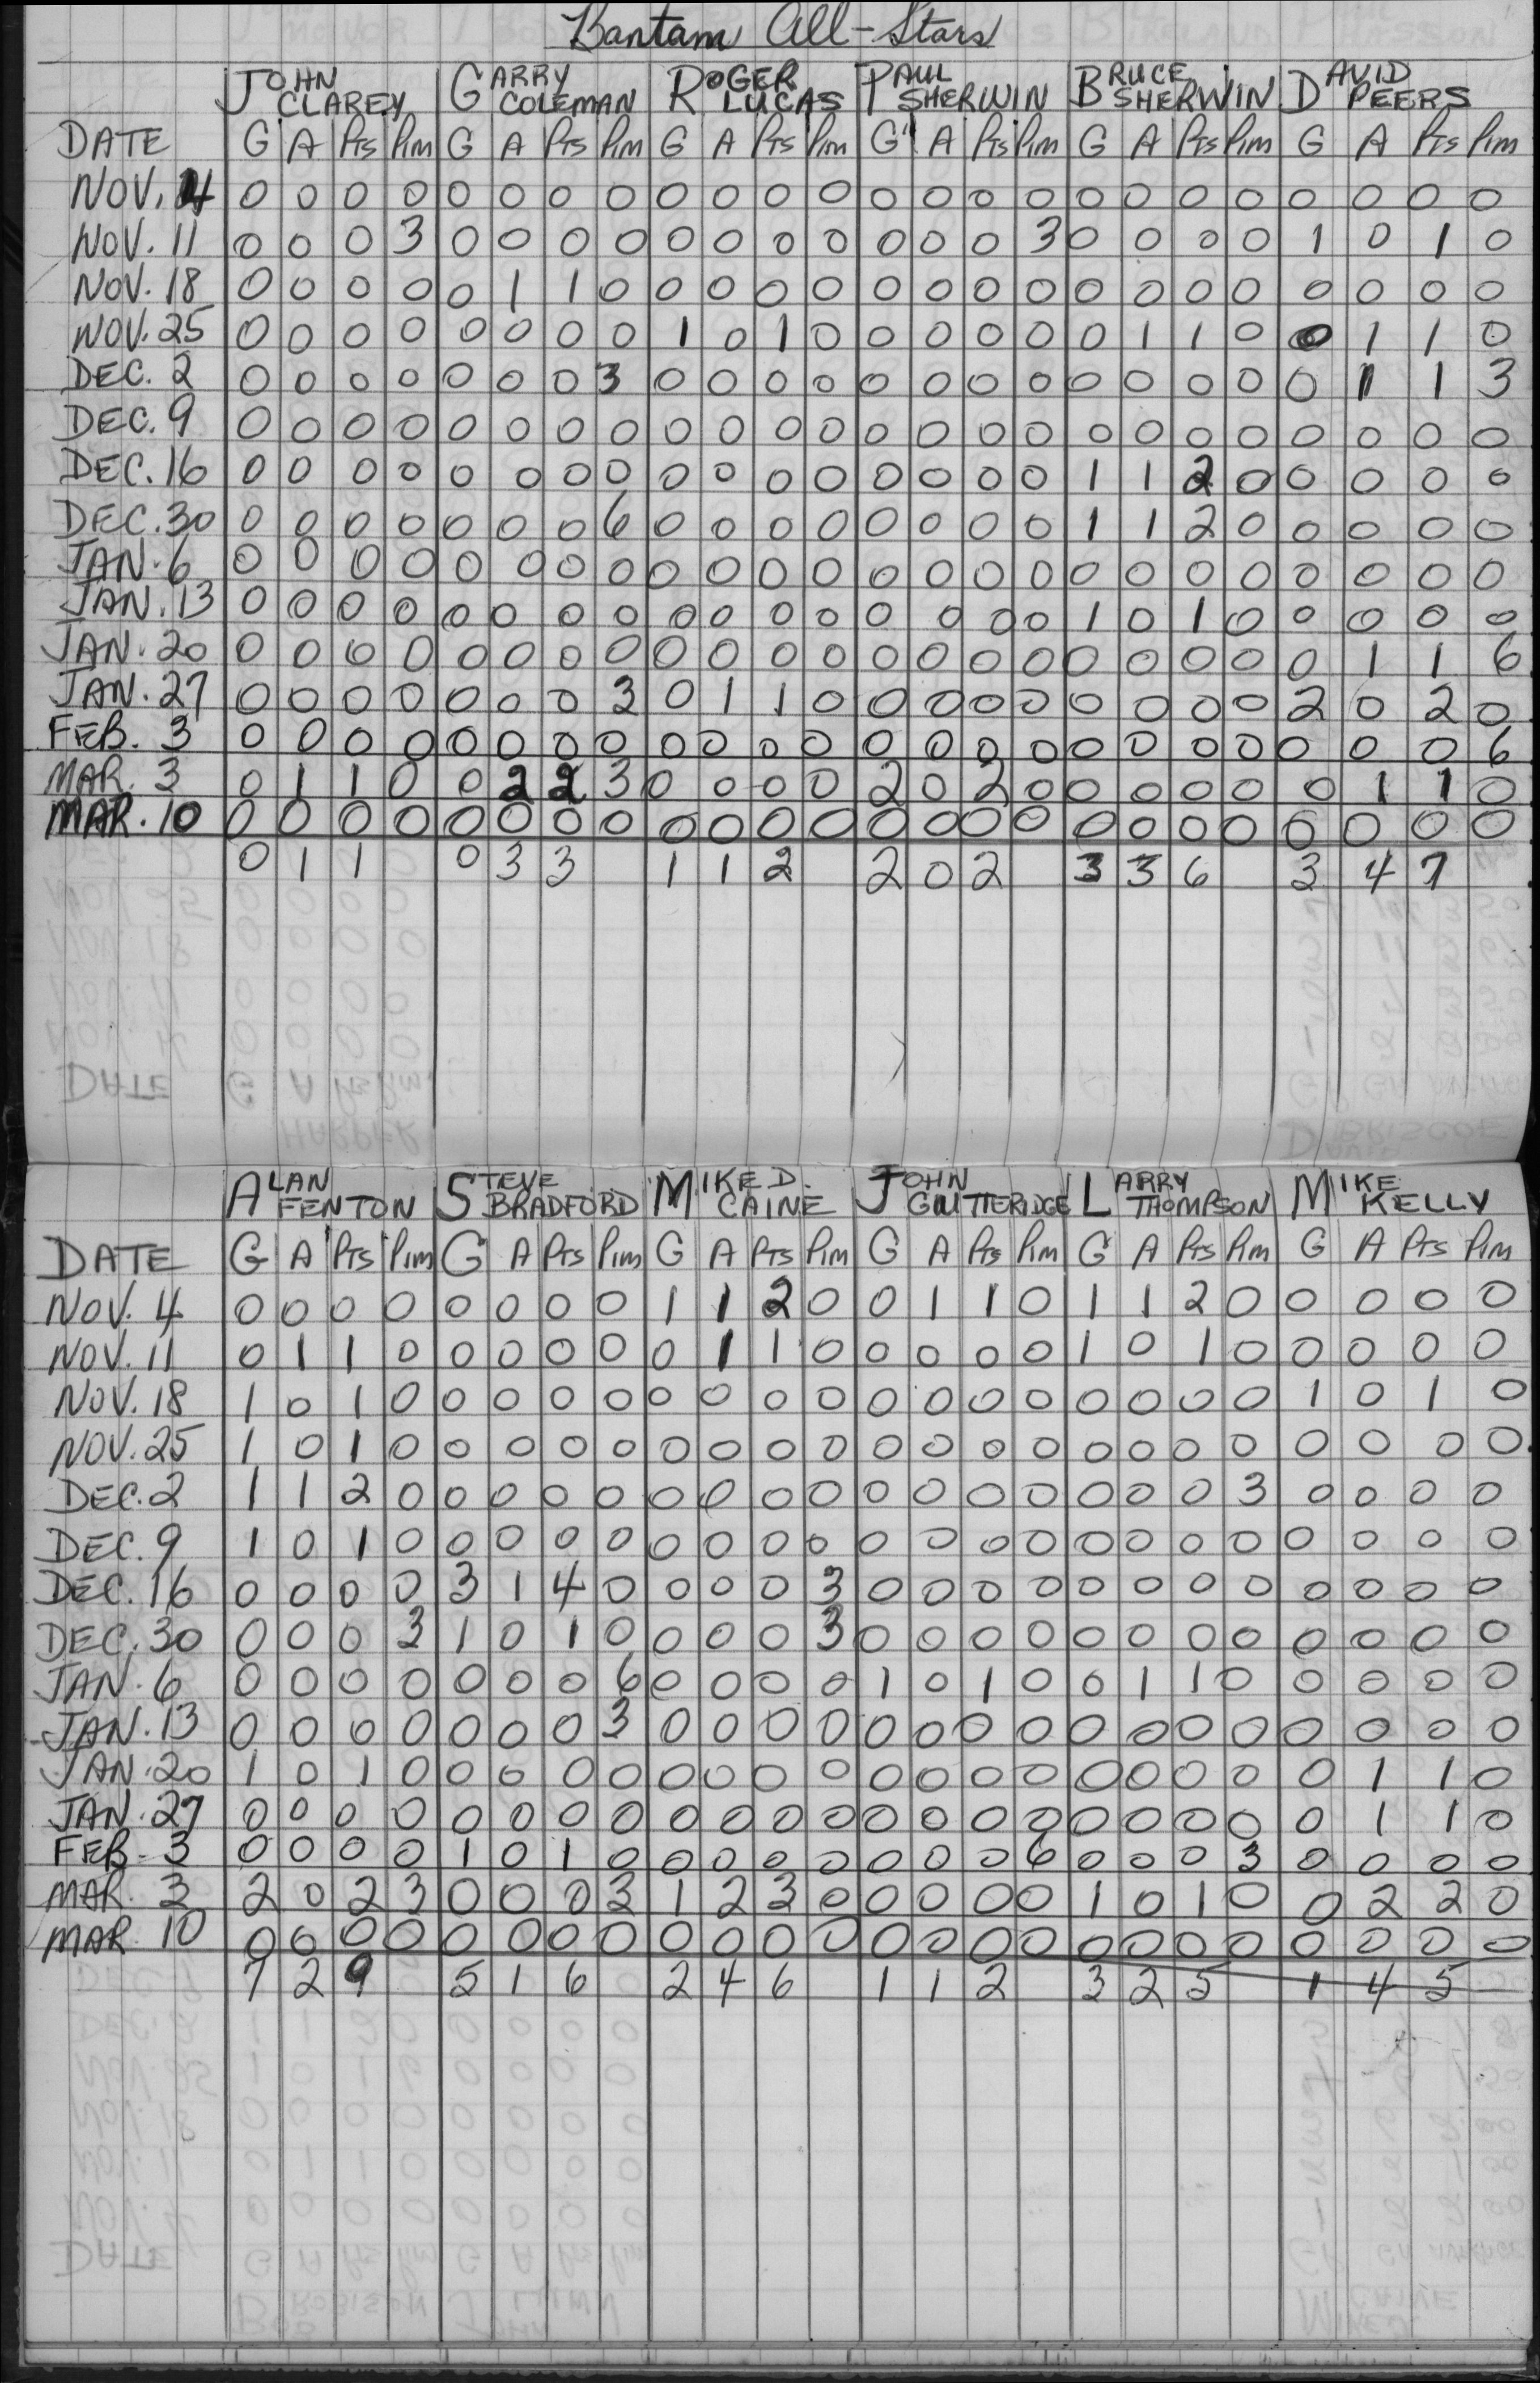 Bantam All-Stars
JOHN CLAREY GARRY COLEMAN ROGER LUCAS PAUL SHERWIN BRUCE SHERWIN DAVID PEERS
DATE G A Pts Pim G A Pts Pim G A Pts Pim G A Pts Pim G A Pts Pim G A Pts Pim
NOV. 4 0 0 0 0 0 0 0 0 0 0 0 0 0 0 0 0 0 0 0 0 0 0 0 0
NOV. 11 0 0 0 3 0 0 0 0 0 0 0 0 0 0 0 3 0 0 0 0 1 0 1 0
NOV. 18 0 0 0 0 0 1 1 0 0 0 0 0 0 0 0 0 0 0 0 0 0 0 0 0
NOV. 25 0 0 0 0 0 0 0 0 1 0 1 0 0 0 0 0 0 1 1 0 0 1 1 0
DEC. 2 0 0 0 0 0 0 0 3 0 0 0 0 0 0 0 0 0 0 0 0 0 1 1 3
DEC. 9 0 0 0 0 0 0 0 0 0 0 0 0 0 0 0 0 0 0 0 0 0 0 0 0
DEC. 16 0 0 0 0 0 0 0 0 0 0 0 0 0 0 0 0 1 1 2 0 0 0 0 0
DEC. 30 0 0 0 0 0 0 0 6 0 0 0 0 0 0 0 0 1 1 2 0 0 0 0 0
JAN. 6 0 0 0 0 0 0 0 0 0 0 0 0 0 0 0 0 0 0 0 0 0 0 0 0
JAN. 13 0 0 0 0 0 0 0 0 0 0 0 0 0 0 0 0 1 0 1 0 0 0 0 0
JAN. 20 0 0 0 0 0 0 0 0 0 0 0 0 0 0 0 0 0 0 0 0 0 1 1 6
JAN. 27 0 0 0 0 0 0 0 3 0 1 1 0 0 0 0 0 0 0 0 0 2 0 2 0
FEB. 3 0 0 0 0 0 0 0 0 0 0 0 0 0 0 0 0 0 0 0 0 0 0 0 6
MAR. 3 0 1 1 0 0 2 2 3 0 0 0 0 2 0 2 0 0 0 0 0 0 1 1 0
MAR. 10 0 0 0 0 0 0 0 0 0 0 0 0 0 0 0 0 0 0 0 0 0 0 0 0
0 1 1 0 3 3 1 1 2 2 0 2 3 3 6 3 4 7
ALAN FENTON STEVE BRADFORD MIKE D. CAINE JOHN GUTTERIDGE LARRY THOMPSON MIKE KELLY
DATE G A Pts Pim G A Pts Pim G A Pts Pim G A Pts Pim G A Pts Pim G A Pts Pim
NOV. 4 0 0 0 0 0 0 0 0 1 1 2 0 0 1 1 0 1 1 2 0 0 0 0 0
NOV. 11 0 1 1 0 0 0 0 0 0 1 1 0 0 0 0 0 1 0 1 0 0 0 0 0
NOV. 18 1 0 1 0 0 0 0 0 0 0 0 0 0 0 0 0 0 0 0 0 1 0 1 0
NOV. 25 1 0 1 0 0 0 0 0 0 0 0 0 0 0 0 0 0 0 0 0 0 0 0 0
DEC. 2 1 1 2 0 0 0 0 0 0 0 0 0 0 0 0 0 0 0 0 3 0 0 0 0
DEC. 9 1 0 1 0 0 0 0 0 0 0 0 0 0 0 0 0 0 0 0 0 0 0 0 0
DEC. 16 0 0 0 0 3 1 4 0 0 0 0 3 0 0 0 0 0 0 0 0 0 0 0 0
DEC. 30 0 0 0 3 1 0 1 0 0 0 0 3 0 0 0 0 0 0 0 0 0 0 0 0
JAN. 6 0 0 0 0 0 0 0 6 0 0 0 0 1 0 1 0 0 1 1 0 0 0 0 0
JAN. 13 0 0 0 0 0 0 0 3 0 0 0 0 0 0 0 0 0 0 0 0 0 0 0 0
JAN. 20 1 0 1 0 0 0 0 0 0 0 0 0 0 0 0 0 0 0 0 0 0 1 1 0
JAN. 27 0 0 0 0 0 0 0 0 0 0 0 0 0 0 0 0 0 0 0 0 0 1 1 0
FEB. 3 0 0 0 0 1 0 1 0 0 0 0 0 0 0 0 6 0 0 0 3 0 0 0 0
MAR. 3 2 0 2 3 0 0 0 3 1 2 3 0 0 0 0 0 1 0 1 0 0 2 2 0
MAR 10 0 0 0 0 0 0 0 0 0 0 0 0 0 0 0 0 0 0 0 0 0 0 0 0
7 2 9 5 1 6 2 4 6 1 1 2 3 2 5 1 4 5